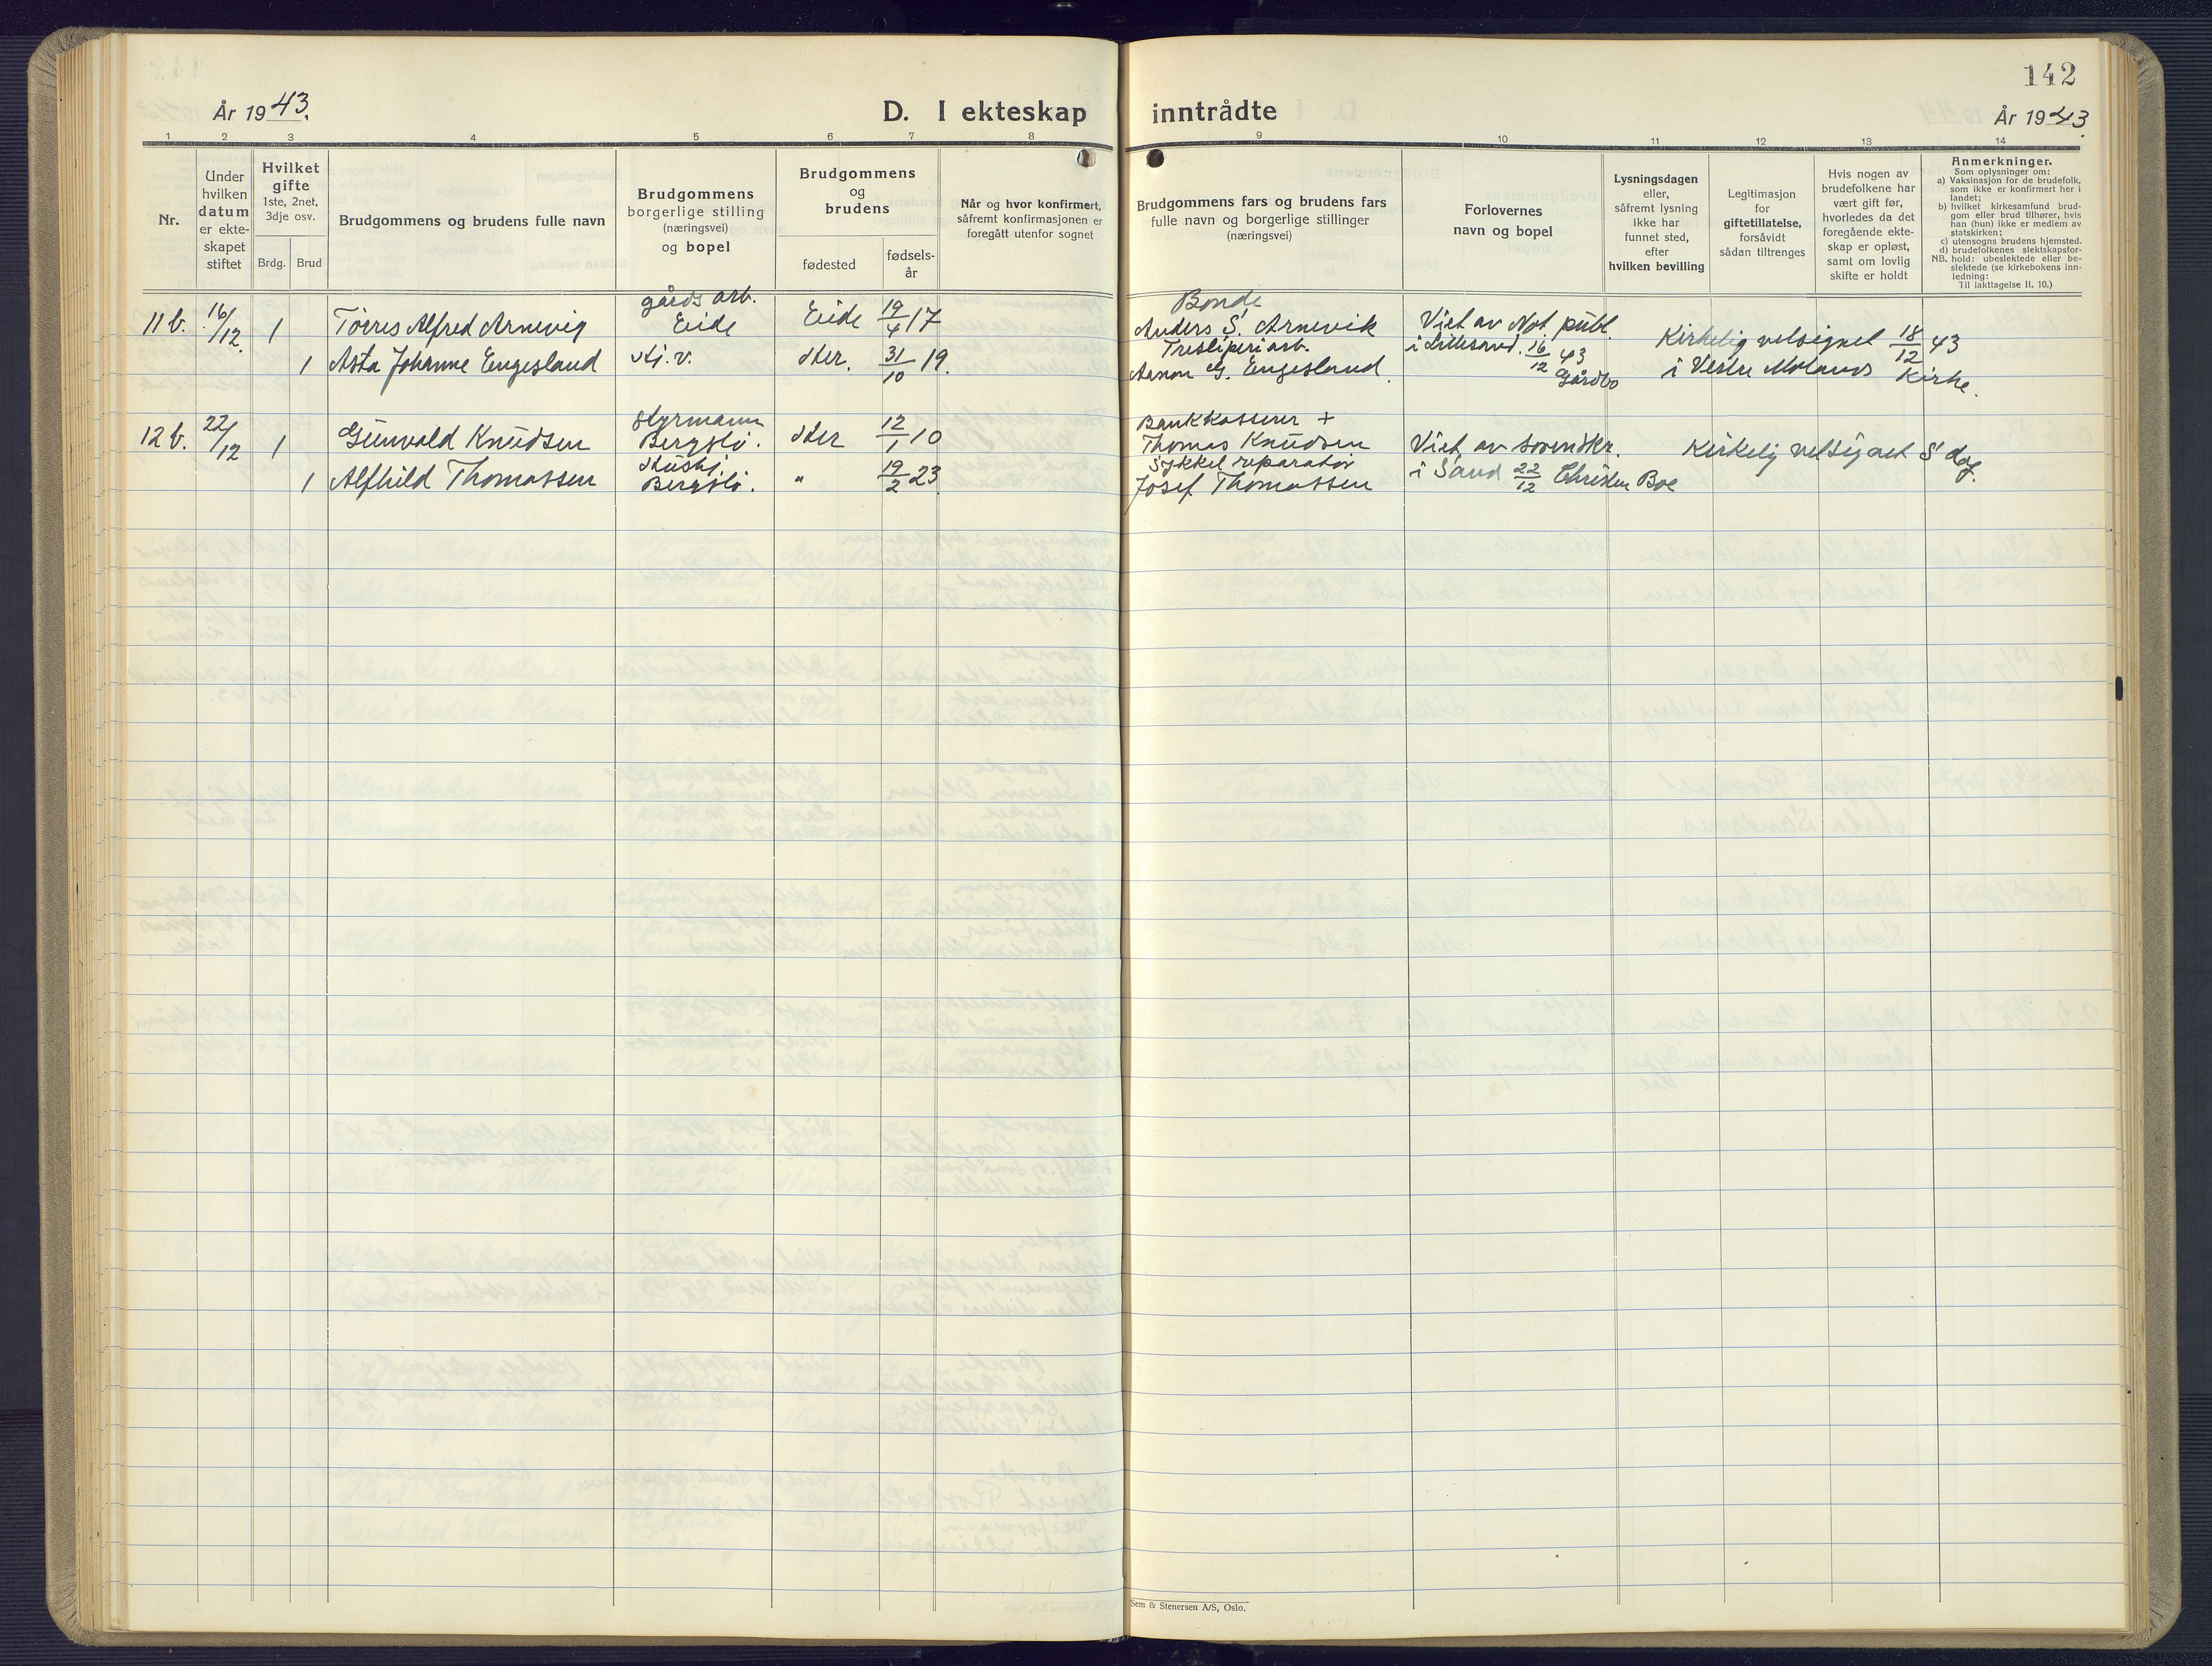 142
År 1943.
D. I ekteskap inntrådte
År 1943.
1 2 3 4 5 6 7 8 9 10 11 12 13 14
Nr.
Under
hvilken
datum
er ekte-
skapet
stiftet
Hvilket
gifte
1ste, 2net,
3dje osv.
Brdg. Brud
Brudgommens og brudens fulle navn
Brudgommens
borgerlige stilling
(næringsvei)
og bopel
Brudgommens
og
brudens
fødested
fødsels-
år
Når og hvor konfirmert,
såfremt konfirmasjonen er
foregått utenfor sognet
Brudgommens fars og brudens fars
fulle navn og borgerlige stillinger
(næringsvei)
Forlovernes
navn og bopel
Lysningsdagen
eller,
såfremt lysning
ikke har
funnet sted,
efter
hvilken bevilling
Legitimasjon
for
giftetillatelse,
forsåvidt
sådan tiltrenges
Hvis nogen av
brudefolkene har
vært gift før,
hvorledes da det
foregående ekte-
skap er opløst,
samt om lovlig
skifte er holdt
Anmerkninger.
Som oplysninger om:
a) Vaksinasjon for de brudefolk,
som ikke er konfirmert her i
landet;
b) hvilket kirkesamfund brud-
gom eller brud tilhører, hvis
han (hun) ikke er medlem av
statskirken;
c) utensogns brudens hjemsted.
d) brudefolkenes slektskapsfor-
NB. hold: ubeslektede eller be-
slektede (se kirkebokens inn-
ledning:
Til iakttagelse II. 10.)
gårds arb. Bonde
11 b. 16/12. 1 Tørres Alfred Arnevig Eide Eide 19/4 17 Anders S. Arnevik Viet av Not. publ. Kirkelig velsignet 18/12 43
Tresliperiarb. i Lillesand. 16/12 43
1 Asta Johanne Engesland stj. v. 31/10 19. Aanon G. Engesland. Gårdbo i Vestre Molands Kirke.
Styrmann Bankkasserer +
12 b. 22/12 1 Gunvald Knudsen Bergslo. 12/1 10 Thomas Knudsen Viet av sorenskr. Kirkelig velsignet S. dag.
Sykkel reparatør
1 Alfhild Thomassen Bergslo. " 19/2 23 Josef Thomassen i Sand 22/12 Christen Boe
Sem & Stenersen A/S, Oslo.